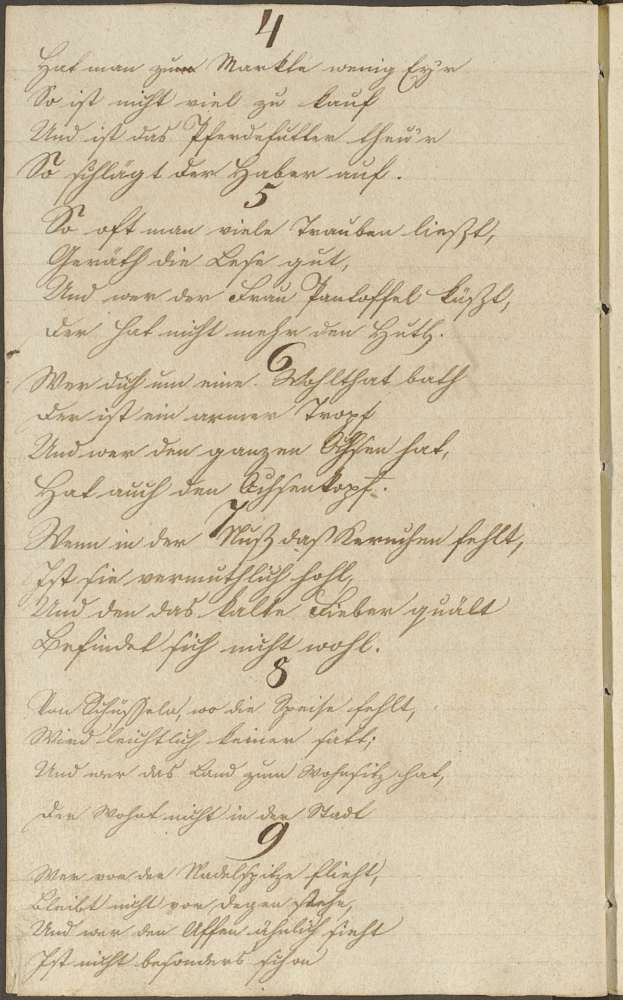 4
Hat man zum Markte wenig Ey'r
So ist nicht viel zu kauf
Und ist das Pferdefutter theu'r
So schlägt der Haber auf.
5
So oft man viele Trauben ließt,
Geräth die Lese gut,
Und wer der Frau Pantoffel küßt,
Der hat nicht mehr den Huth.
6
Wer dich um eine Wohlthat bath
Der ist ein armer Tropf
Und wer den ganzen Ochsen hat,
Hat auch den Ochsenkopf.
7
Wenn in der Nuß das Kernchen fehlt,
Ist sie vermuthlich hohl,
Und den das kalte Fieber quält
Befindet sich nicht wohl.
8
Von Schüsseln, wo die Speise fehlt,
Wird leichtlich keiner satt;
Und wer das Land zum Wohnsitz hat,
Der Wohnt nicht in der Stadt
9
Wer vor der Nadelspitze flieht,
Bleibt nicht vor Degen stehn,
Und wer den Affen ähnlich sieht
Ist nicht besonders schön